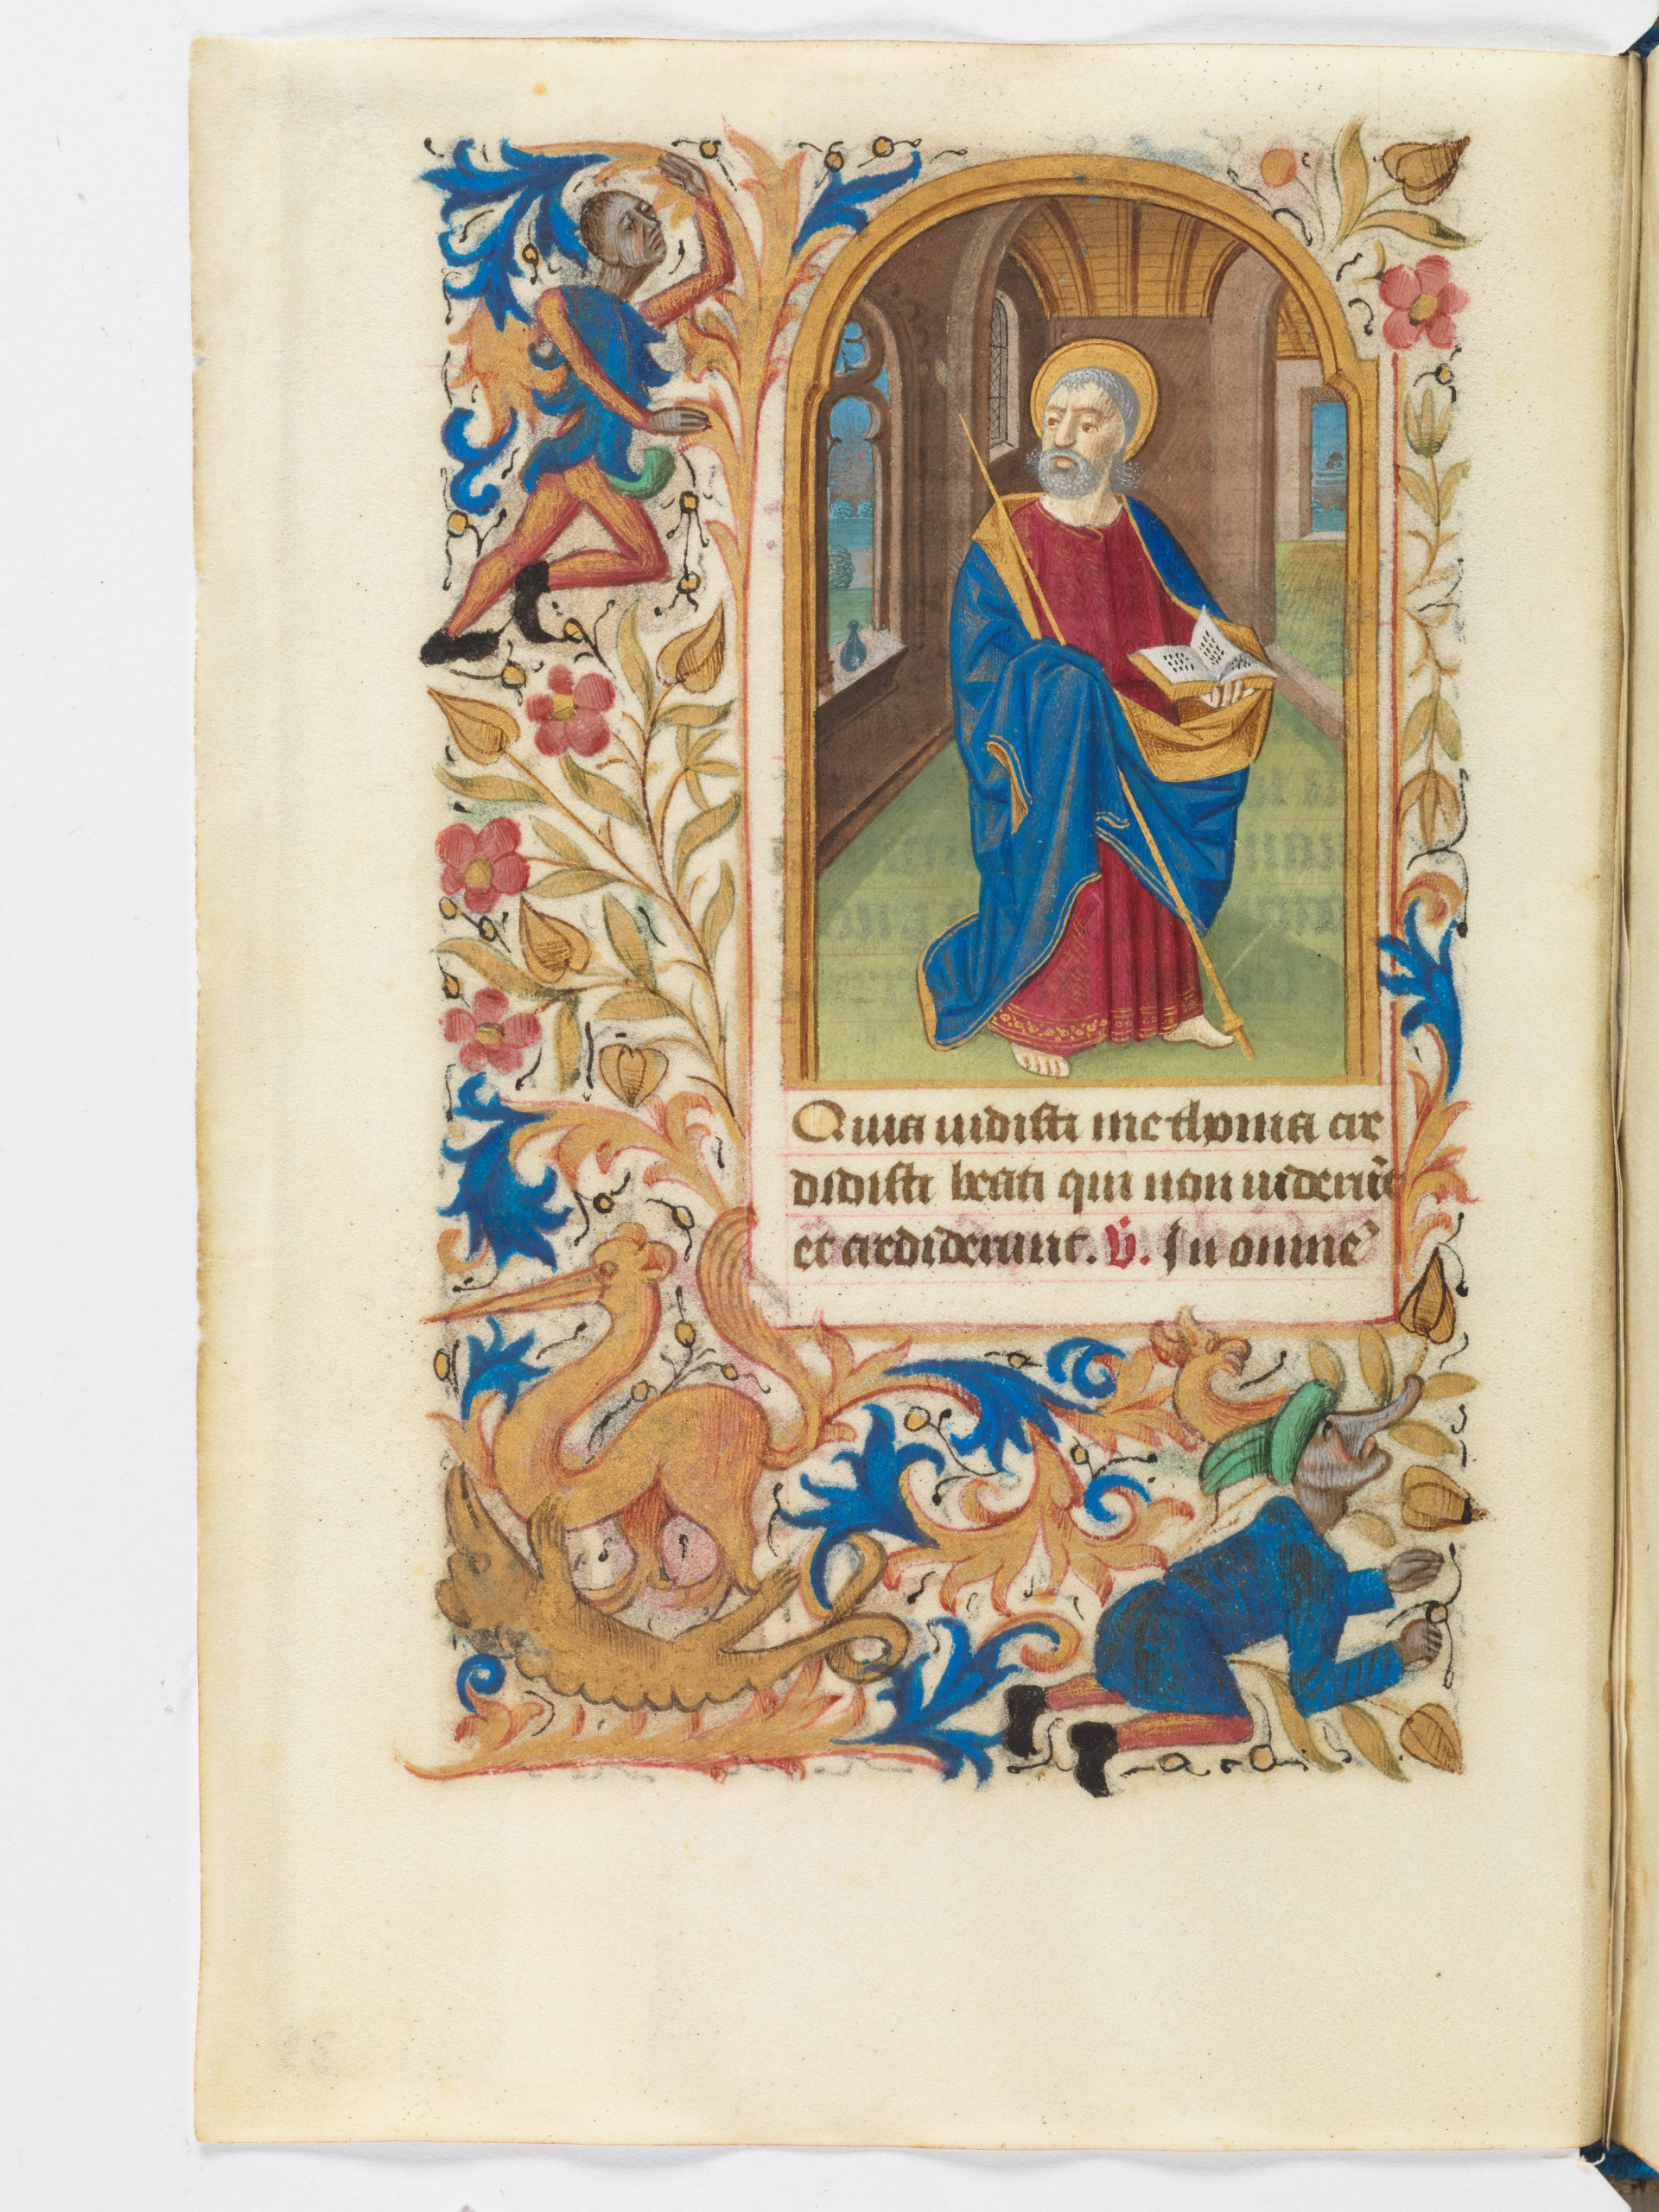 Quia uidisti me thoma cre
didisti beati qui non uiderūt
et crediderunt. ℣. In omnē